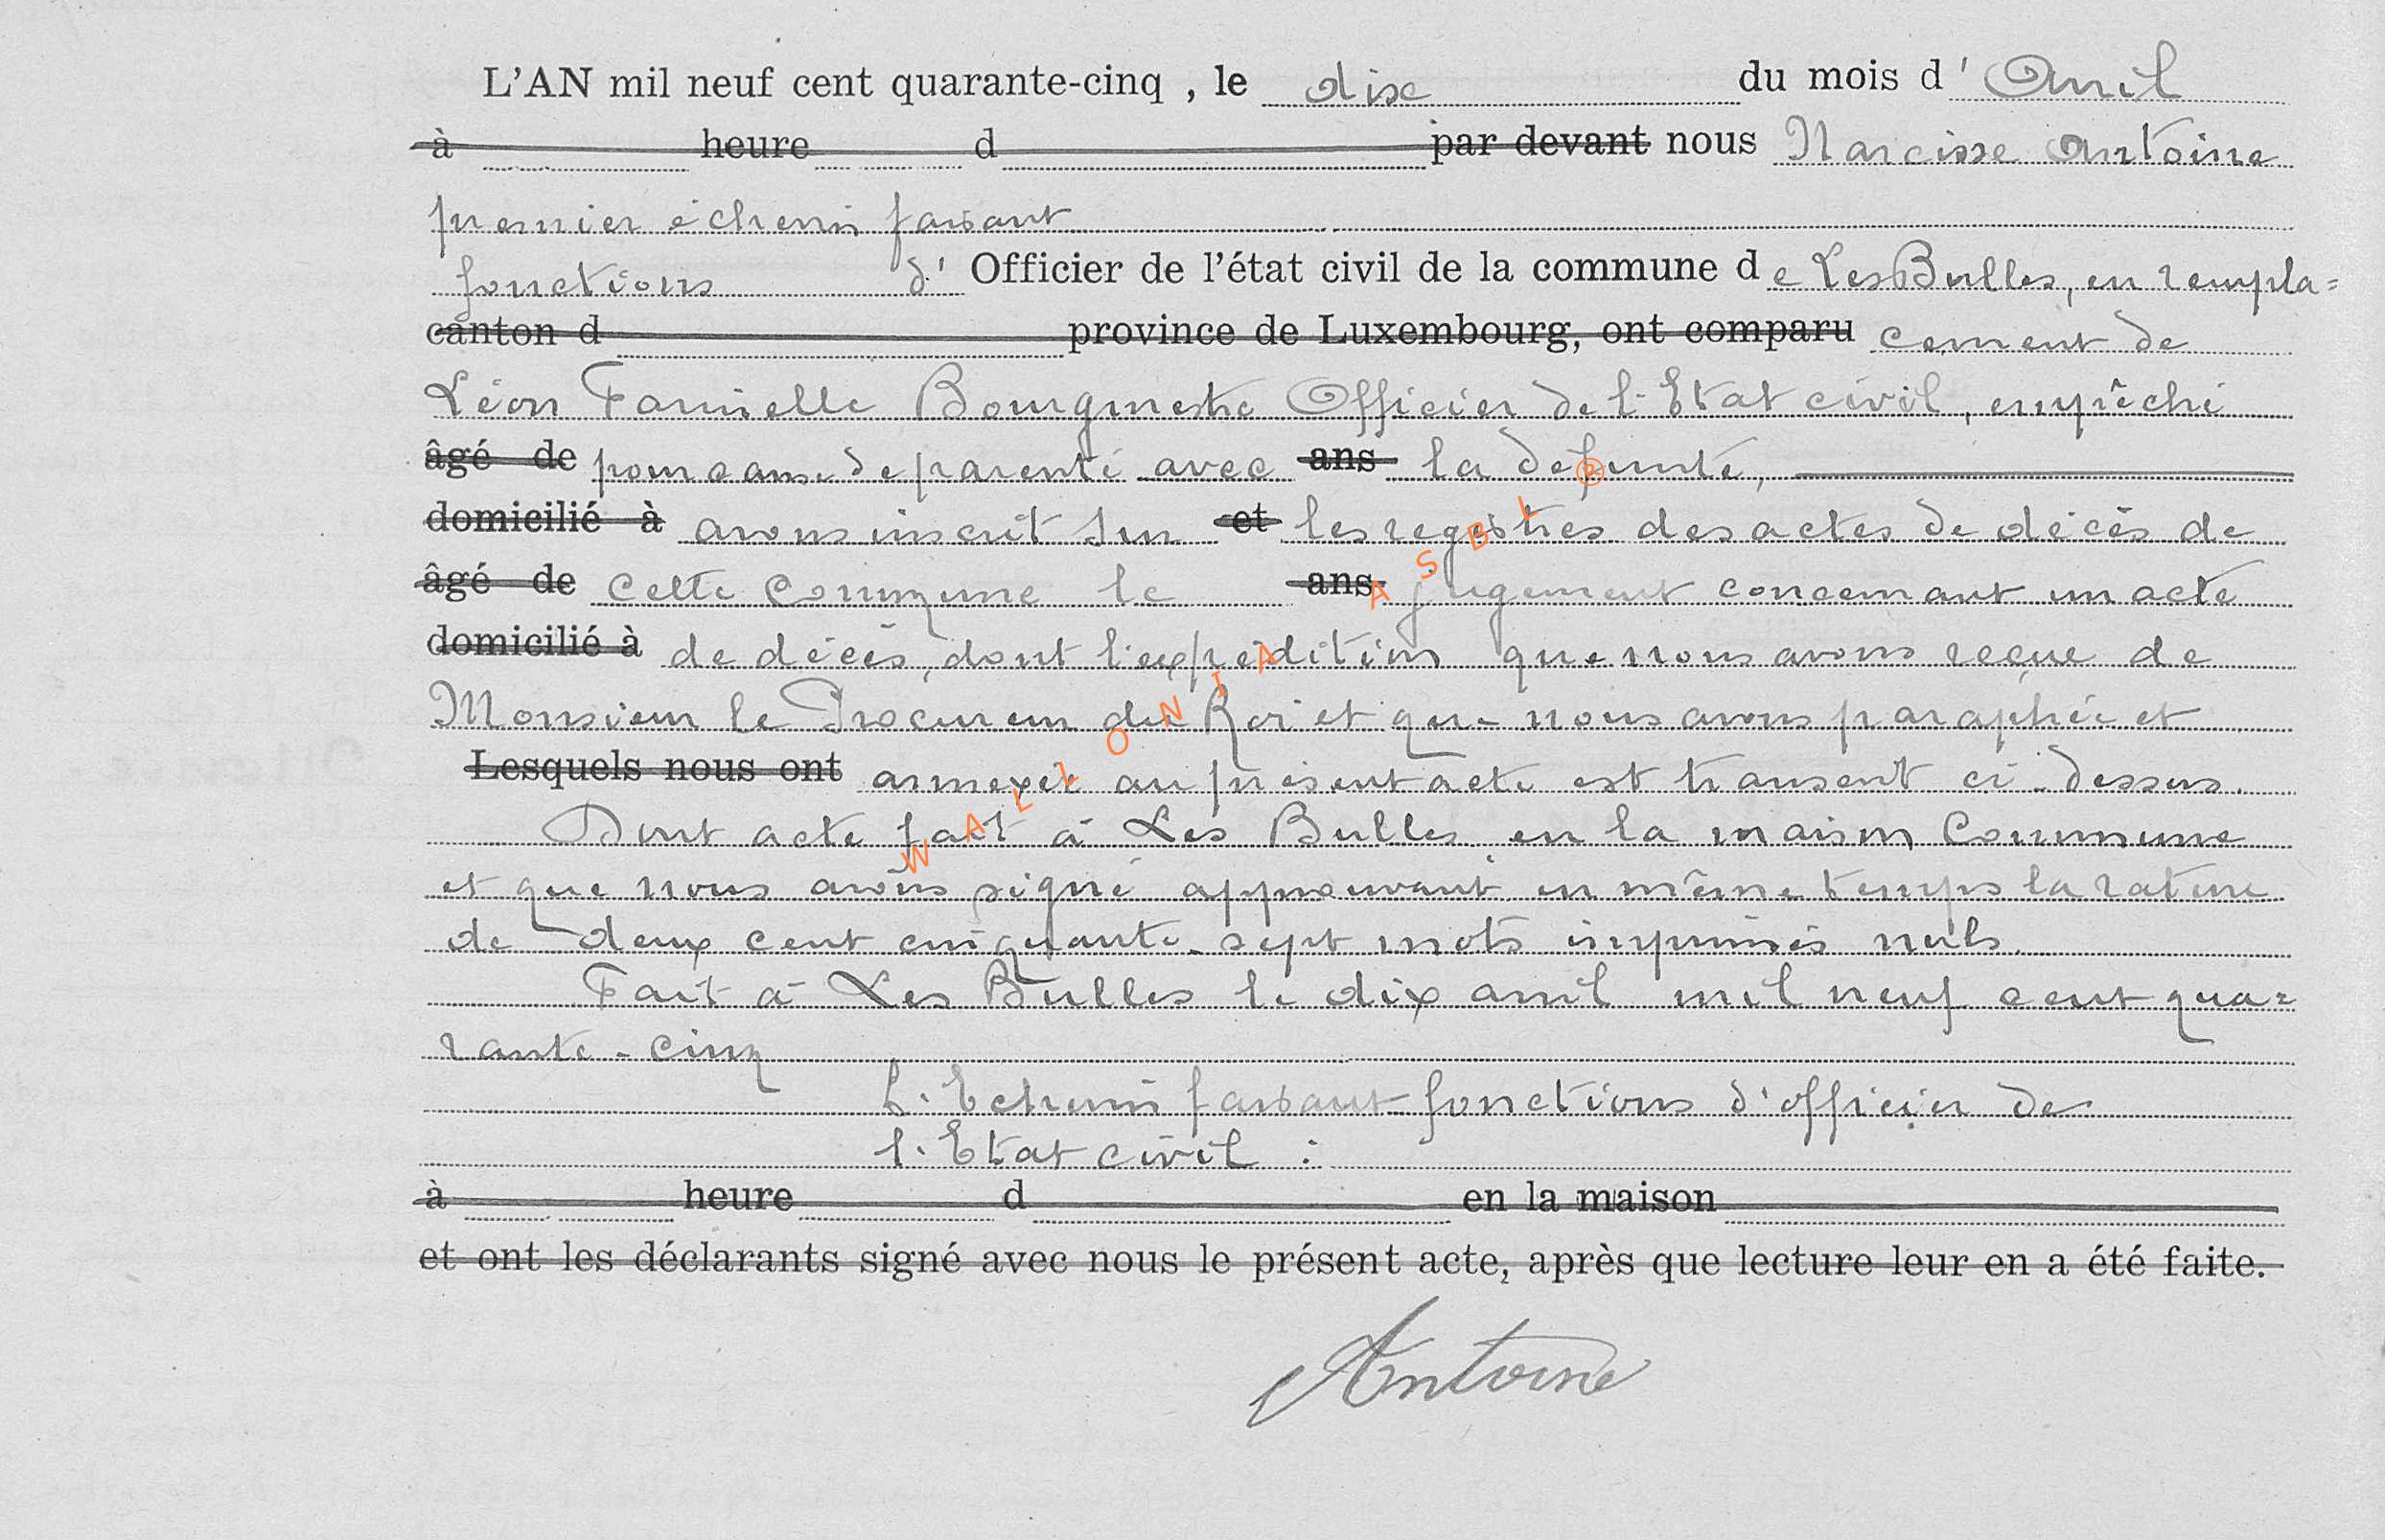 L'AN mil neuf cent quarante-cinq , le dix du mois d' Avril
à heure d par devant nous Narcisse Antoine
premier échevin faisant
fonctions d' Officier de l'état civil de la commune de Les Bulles, en rempla=
canton d province de Luxembourg, ont comparu cement de
Léon Farinelle Bourgmestre Officier de l'Etat civil, empêché
âgé de pour cause de parenté avec ans la défunte,
domicilié à avons inscrit sur et les registres des actes de décès de
âgé de cette Commune le ans jugement concernant un acte
domicilié à de décès, dont l'expédition que nous avons reçue de
Monsieur le Procureur du Roi et que nous avons paraphée et
Lesquels nous ont annexée au présent acte est transcrit ci-dessus.
Dont acte fait à Les Bulles en la maison Commune
et que nous avons signé approuvant en même temps la rature
de deux cent cinquante-sept mots imprimés nuls.
Fait à Les Bulles le dix avril mil neuf cent qua=
rante-cinq
L'Echevin faisant fonctions d'officier de
l'Etat civil :
à heure d en la maison
et ont les déclarants signé avec nous le présent acte, après que lecture leur en a été faite.
Antoine
WALLONIA ASBL ®